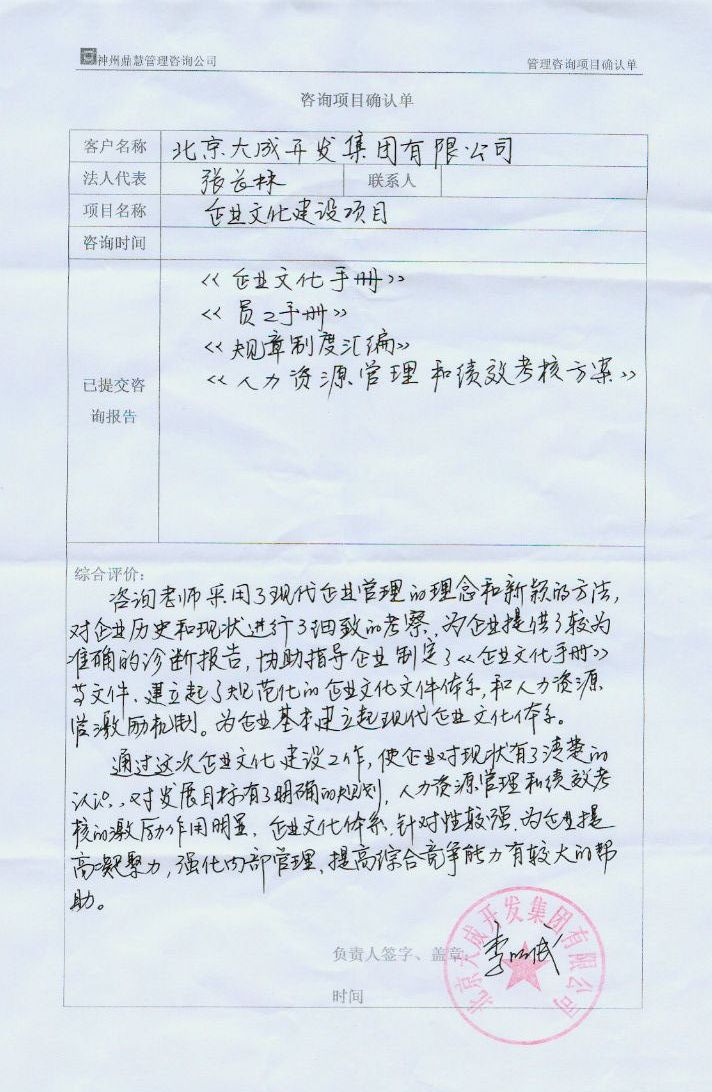 神州鼎慧管理咨询公司 管理咨询项目确认单
咨询项目确认单
客户名称 北京大成开发集团有限公司
法人代表 张长林 联系人
项目名称 企业文化建设项目
咨询时间
已提交咨询报告
《企业文化手册》
《员工手册》
《规章制度汇编》
《人力资源管理和绩效考核方案》
综合评价:
咨询老师采用了现代企业管理的理念和新颖的方法,
对企业历史和现状进行了细致的考察,为企业提供了较为
准确的诊断报告,协助指导企业制定了《企业文化手册》
等文件、建立起了规范化的企业文化文件体系,和人力资源
管激励机制。为企业基本建立起现代企业文化体系。
通过这次企业文化建设工作,使企业对现状有了清楚的
认识、对发展目标有了明确的规划,人力资源管理和绩效考
核的激励作用明显,企业文化体系,针对性较强,为企业提
高凝聚力,强化内部管理、提高综合竞争能力有较大的帮
助。
负责人签字、盖章:
时间
北京大成开发集团有限公司